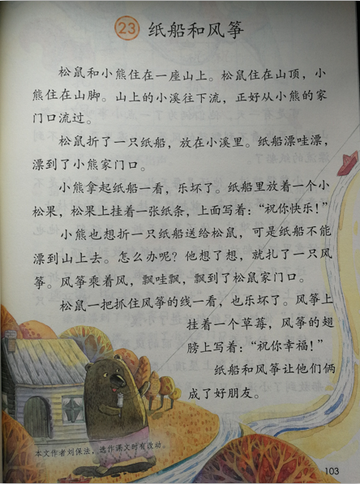 23 纸船和风筝
松鼠和小熊住在一座山上。松鼠住在山顶，小
熊住在山脚。山上的小溪往下流，正好从小熊的家
门口流过。
松鼠折了一只纸船，放在小溪里。纸船漂哇漂，
漂到了小熊家门口。
小熊拿起纸船一看，乐坏了。纸船里放着一个小
松果，松果上挂着一张纸条，上面写着：“祝你快乐！”
小熊也想折一只纸船送给松鼠，可是纸船不能
漂到山上去。怎么办呢？他想了想，就扎了一只风
筝。风筝乘着风，飘哇飘，飘到了松鼠家门口。
松鼠一把抓住风筝的线一看，也乐坏了。风筝上
挂着一个草莓，风筝的翅
膀上写着：“祝你幸福！”
纸船和风筝让他们俩
成了好朋友。
本文作者刘保法，选作课文时有改动。
103